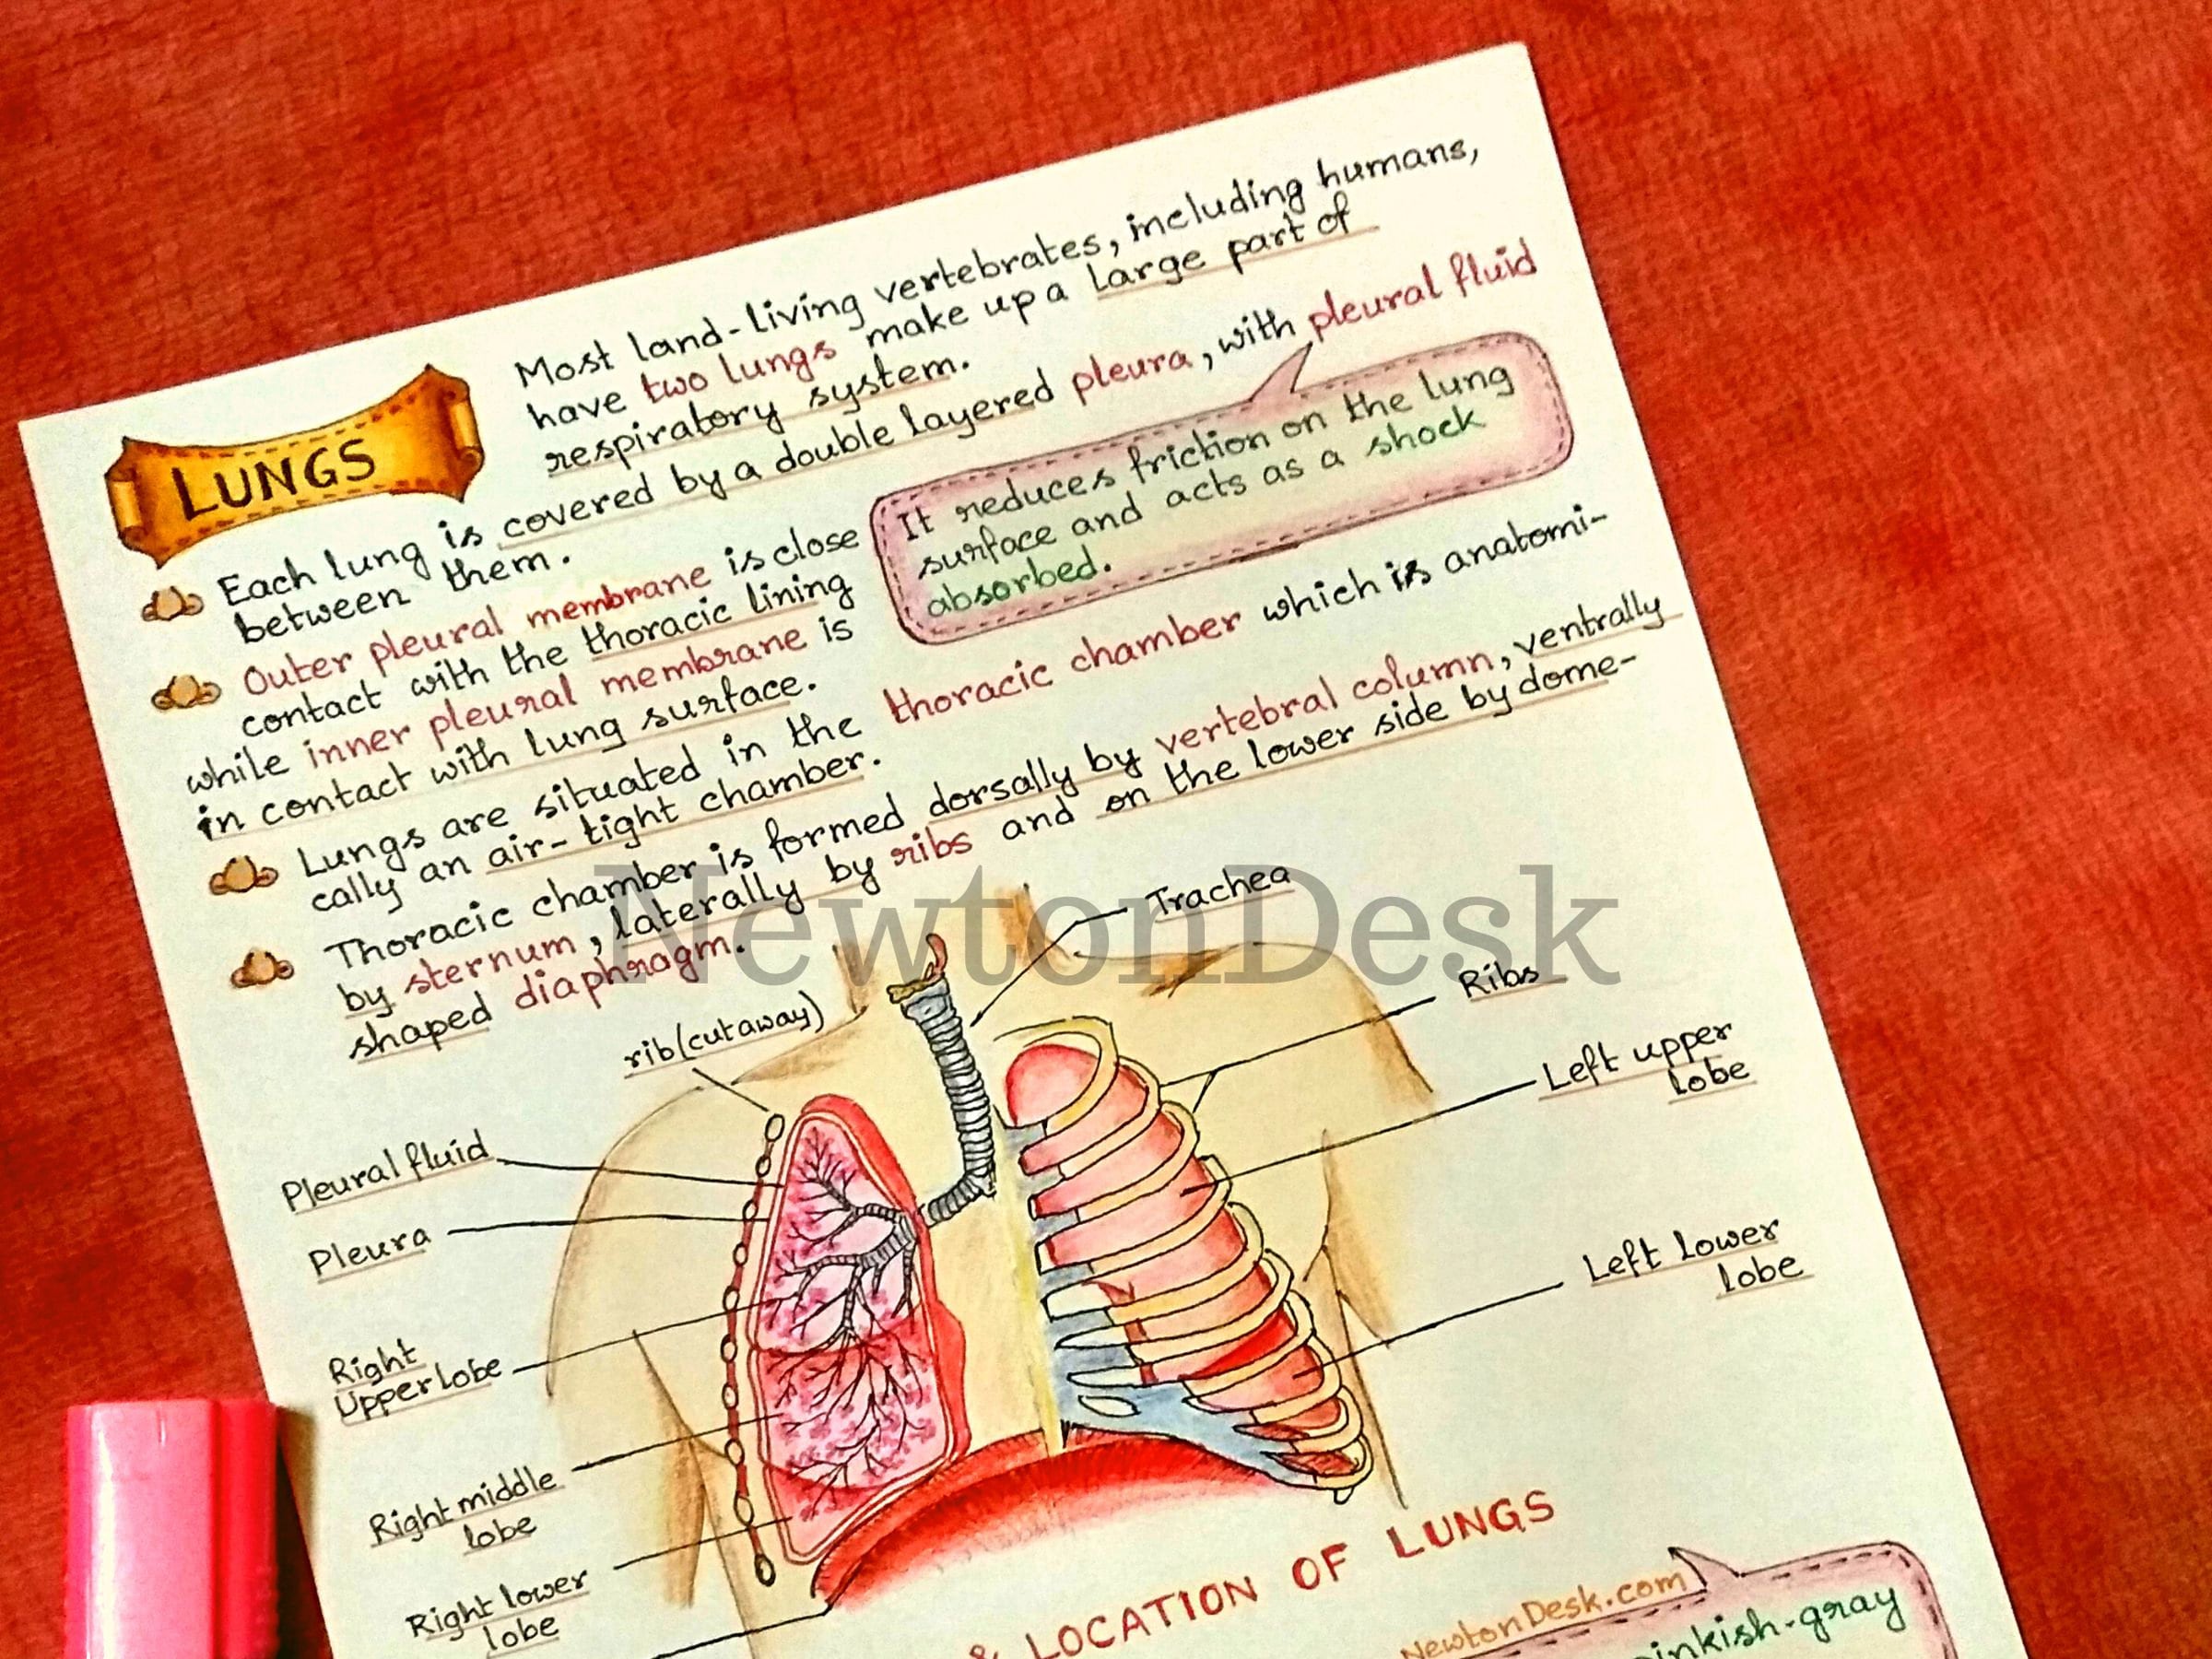 LUNGS
Most land-living vertebrates, including humans,
have two lungs make up a large part of
respiratory system.
Each lung is covered by a double layered pleura, with pleural fluid
between them.
It reduces friction on the lung
surface and acts as a shock
absorbed.
Outer pleural membrane is close
contact with the thoracic lining
while inner pleural membrane is
in contact with lung surface.
Lungs are situated in the thoracic chamber which is anatomi-
cally an air-tight chamber.
Thoracic chamber is formed dorsally by vertebral column, ventrally
by sternum, laterally by ribs and on the lower side by dome-
shaped diaphragm.
NewtonDesk
Trachea
rib(cutaway)
Ribs
Left upper
lobe
Pleural fluid
Pleura
Left lower
lobe
Right
Upper lobe
Right middle
lobe
Right lower
lobe
& LOCATION OF LUNGS
NewtonDesk.com
pinkish-gray